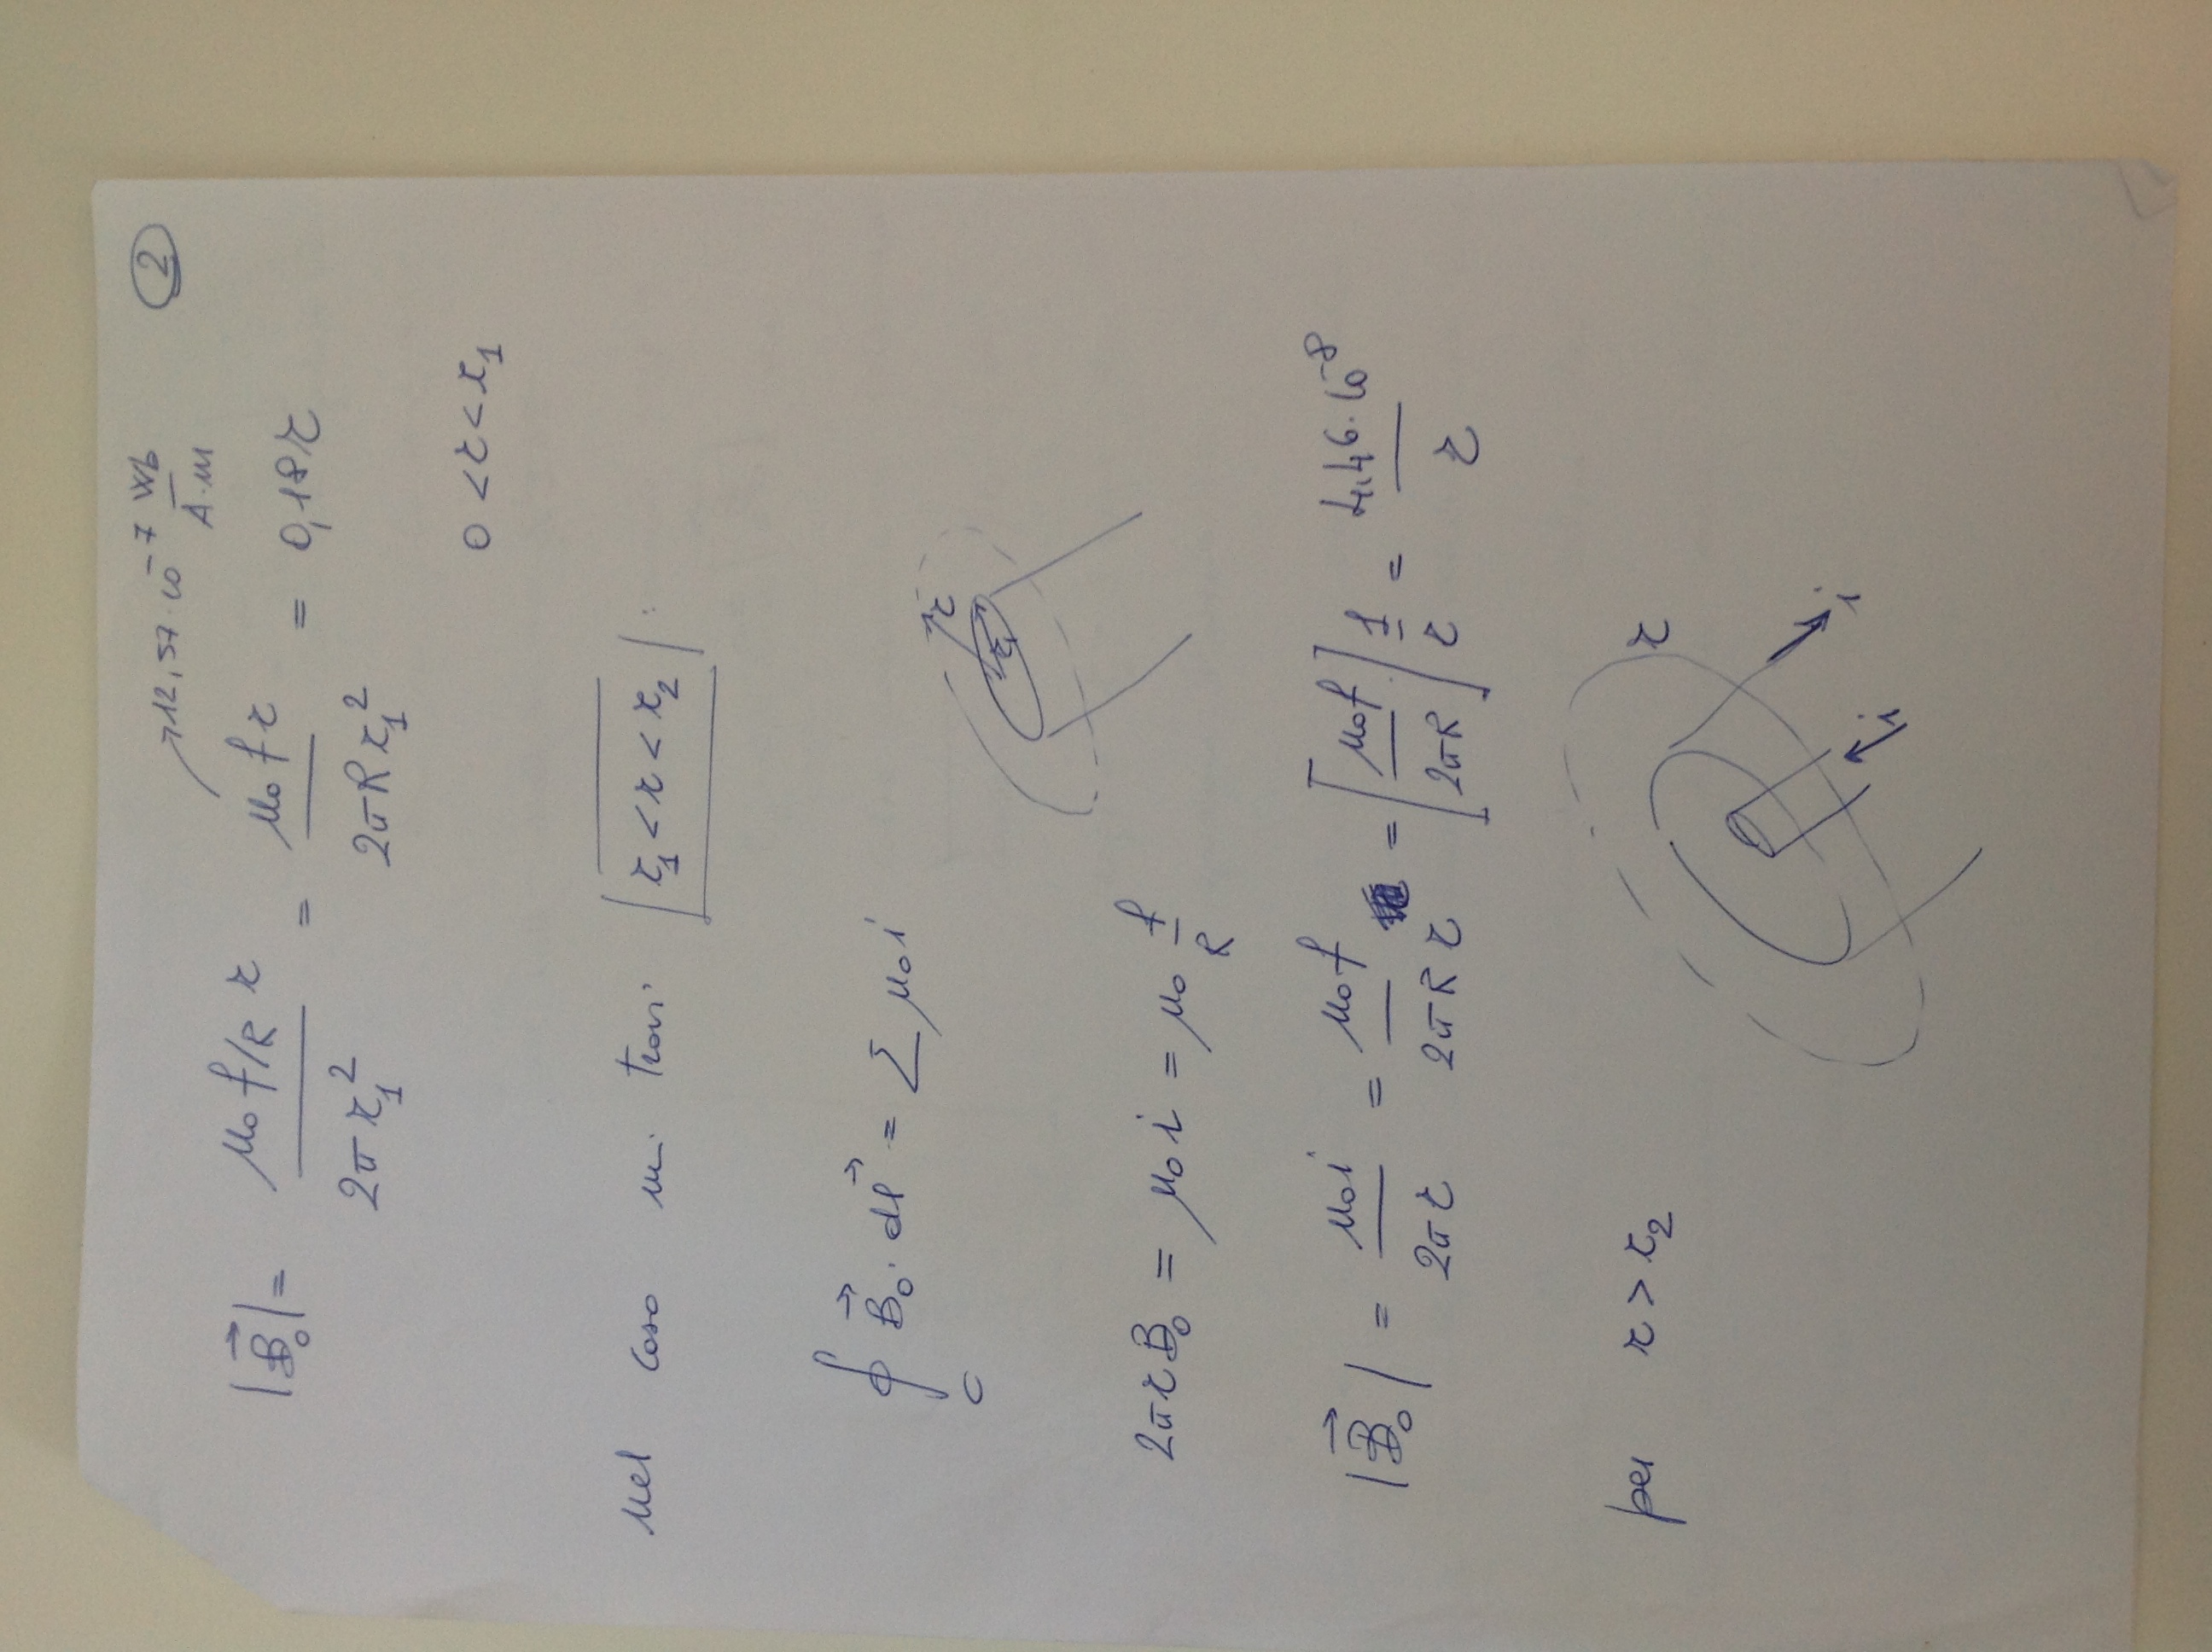 2
→ 12,57·10⁻⁷ Wb/A·m
|B⃗₀| = μ₀ f/R r / 2π r₁² = μ₀ f r / 2πR r₁² = 0,18 r
0 < r < r₁
nel caso mi trovi r₁ < r < r₂ :
∮_C B⃗₀ · dl⃗ = Σ μ₀ i
r
r₁
2π r B₀ = μ₀ i = μ₀ f/R
|B⃗₀| = μ₀ i / 2π r = μ₀ f / 2π R r = [μ₀ f / 2πR] 1/r = 4,46·10⁻⁸ / r
per r > r₂
r
i
i